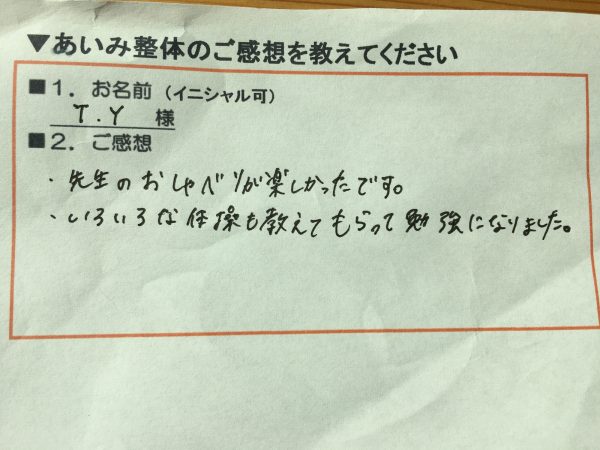 ▼あいみ整体のご感想を教えてください
■1．お名前（イニシャル可）
T.Y 様
■2．ご感想
・先生のおしゃべりが楽しかったです。
・いろいろな体操も教えてもらって勉強になりました。